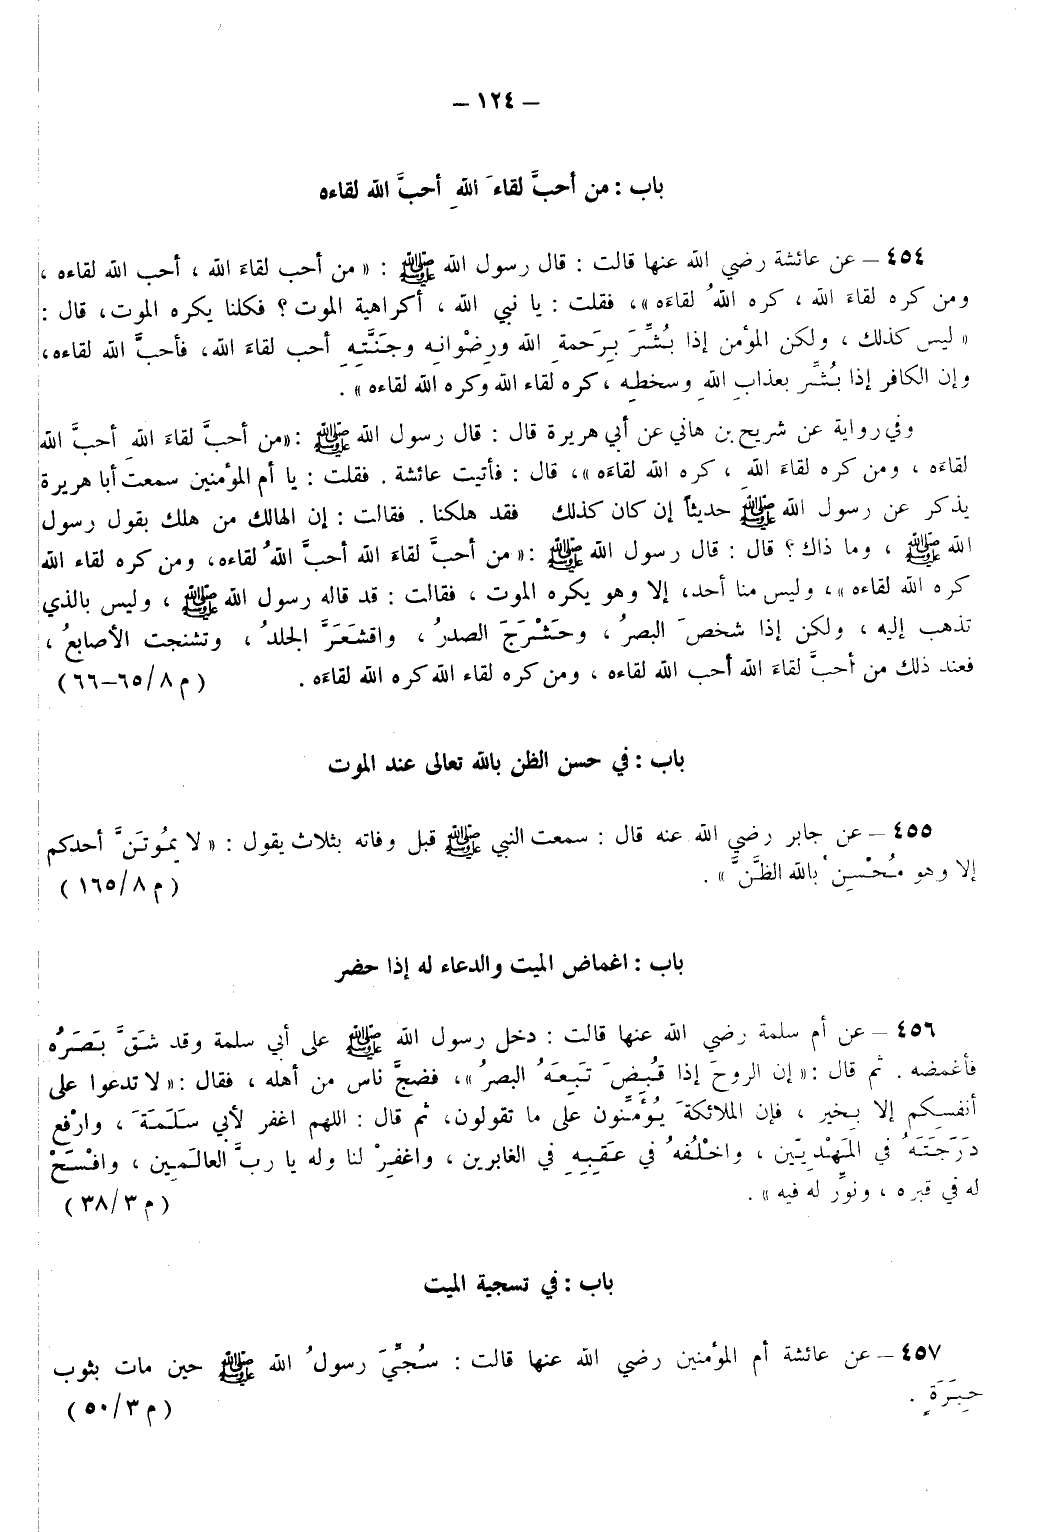 – ١٢٤ –
باب : من أحبَّ لقاءَ اللهِ أحبَّ الله لقاءه
٤٥٤ – عن عائشة رضي الله عنها قالت : قال رسول الله ﷺ : « من أحب لقاءَ الله ، أحب الله لقاءه ،
ومن كره لقاءَ الله ، كره اللهُ لقاءَه »، فقلت : يا نبي الله ، أكراهية الموت ؟ فكلنا يكره الموت، قال :
« ليس كذلك ، ولكن المؤمن إذا بُشِّرَ بِرَحمةِ الله ورِضْوانِه وجَنَّتِهِ أحب لقاءَ الله، فأحبَّ الله لقاءه،
وإن الكافر إذا بُشِّر بعذابِ اللهِ وسخطِه ، كره لقاء الله وكره الله لقاءه » .
وفي رواية عن شريح بن هاني عن أبي هريرة قال : قال رسول الله ﷺ :« من أحبَّ لقاءَ اللهِ أحبَّ الله
لقاءَه ، ومن كره لقاءَ اللهِ ، كره الله لقاءَه »، قال : فأتيت عائشة . فقلت : يا أم المؤمنين سمعت أبا هريرة
يذكر عن رسول الله ﷺ حديثاً إن كان كذلك فقد هلكنا . فقالت : إن الهالك من هلك بقول رسول
الله ﷺ ، وما ذاك ؟ قال : قال رسول الله ﷺ :« من أحبَّ لقاءَ الله أحبَّ اللهُ لقاءه، ومن كره لقاء الله
كره الله لقاءه »، وليس منا أحد، إلا وهو يكره الموت ، فقالت : قد قاله رسول الله ﷺ ، وليس بالذي
تذهب إليه ، ولكن إذا شخصَ البصرُ ، وحَشْرَجَ الصدرُ ، واقشَعَرَّ الجلدُ ، وتشنجت الأصابعُ ،
فعند ذلك من أحبَّ لقاءَ الله أحب الله لقاءه ، ومن كره لقاء الله كره الله لقاءَه . ( م ٨/ ٦٥–٦٦ )
باب : في حسن الظن بالله تعالى عند الموت
٤٥٥ – عن جابر رضي الله عنه قال : سمعت النبي ﷺ قبل وفاته بثلاث يقول : « لا يمُوتَنَّ أحدكم
إلا وهو مُحْسِنٌ بالله الظَّنَّ » . ( م ٨/ ١٦٥ )
باب : اغماض الميت والدعاء له إذا حضر
٤٥٦ – عن أم سلمة رضي الله عنها قالت : دخل رسول الله ﷺ على أبي سلمة وقد شَقَّ بَصَرُه
فأغمضه . ثم قال :« إن الروحَ إذا قُبِضَ تَبِعَهُ البصرُ »، فضجَّ ناس من أهله ، فقال :« لا تدعوا على
أنفسِكم إلا بخير ، فإن الملائكةَ يُؤَمِّنون على ما تقولون، ثم قال : اللهم اغفر لأبي سَلَمَةَ ، وارْفع
دَرَجَتَهُ في المَهْديِّين ، واخْلُفهُ في عَقِبِهِ في الغابرين ، واغفِرْ لنا وله يا ربَّ العالَمين ، وافْسَحْ
له في قبره ، ونوِّر له فيه » . ( م ٣/ ٣٨ )
باب : في تسجية الميت
٤٥٧ – عن عائشة أم المؤمنين رضي الله عنها قالت : سُجِّيَ رسولُ الله ﷺ حين مات بثوب
حِبَرَةٍ . ( م ٣/ ٥٠ )